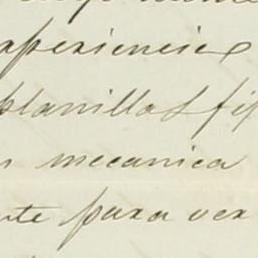 esperiencia
planillas fij
mecanica
nte para ver